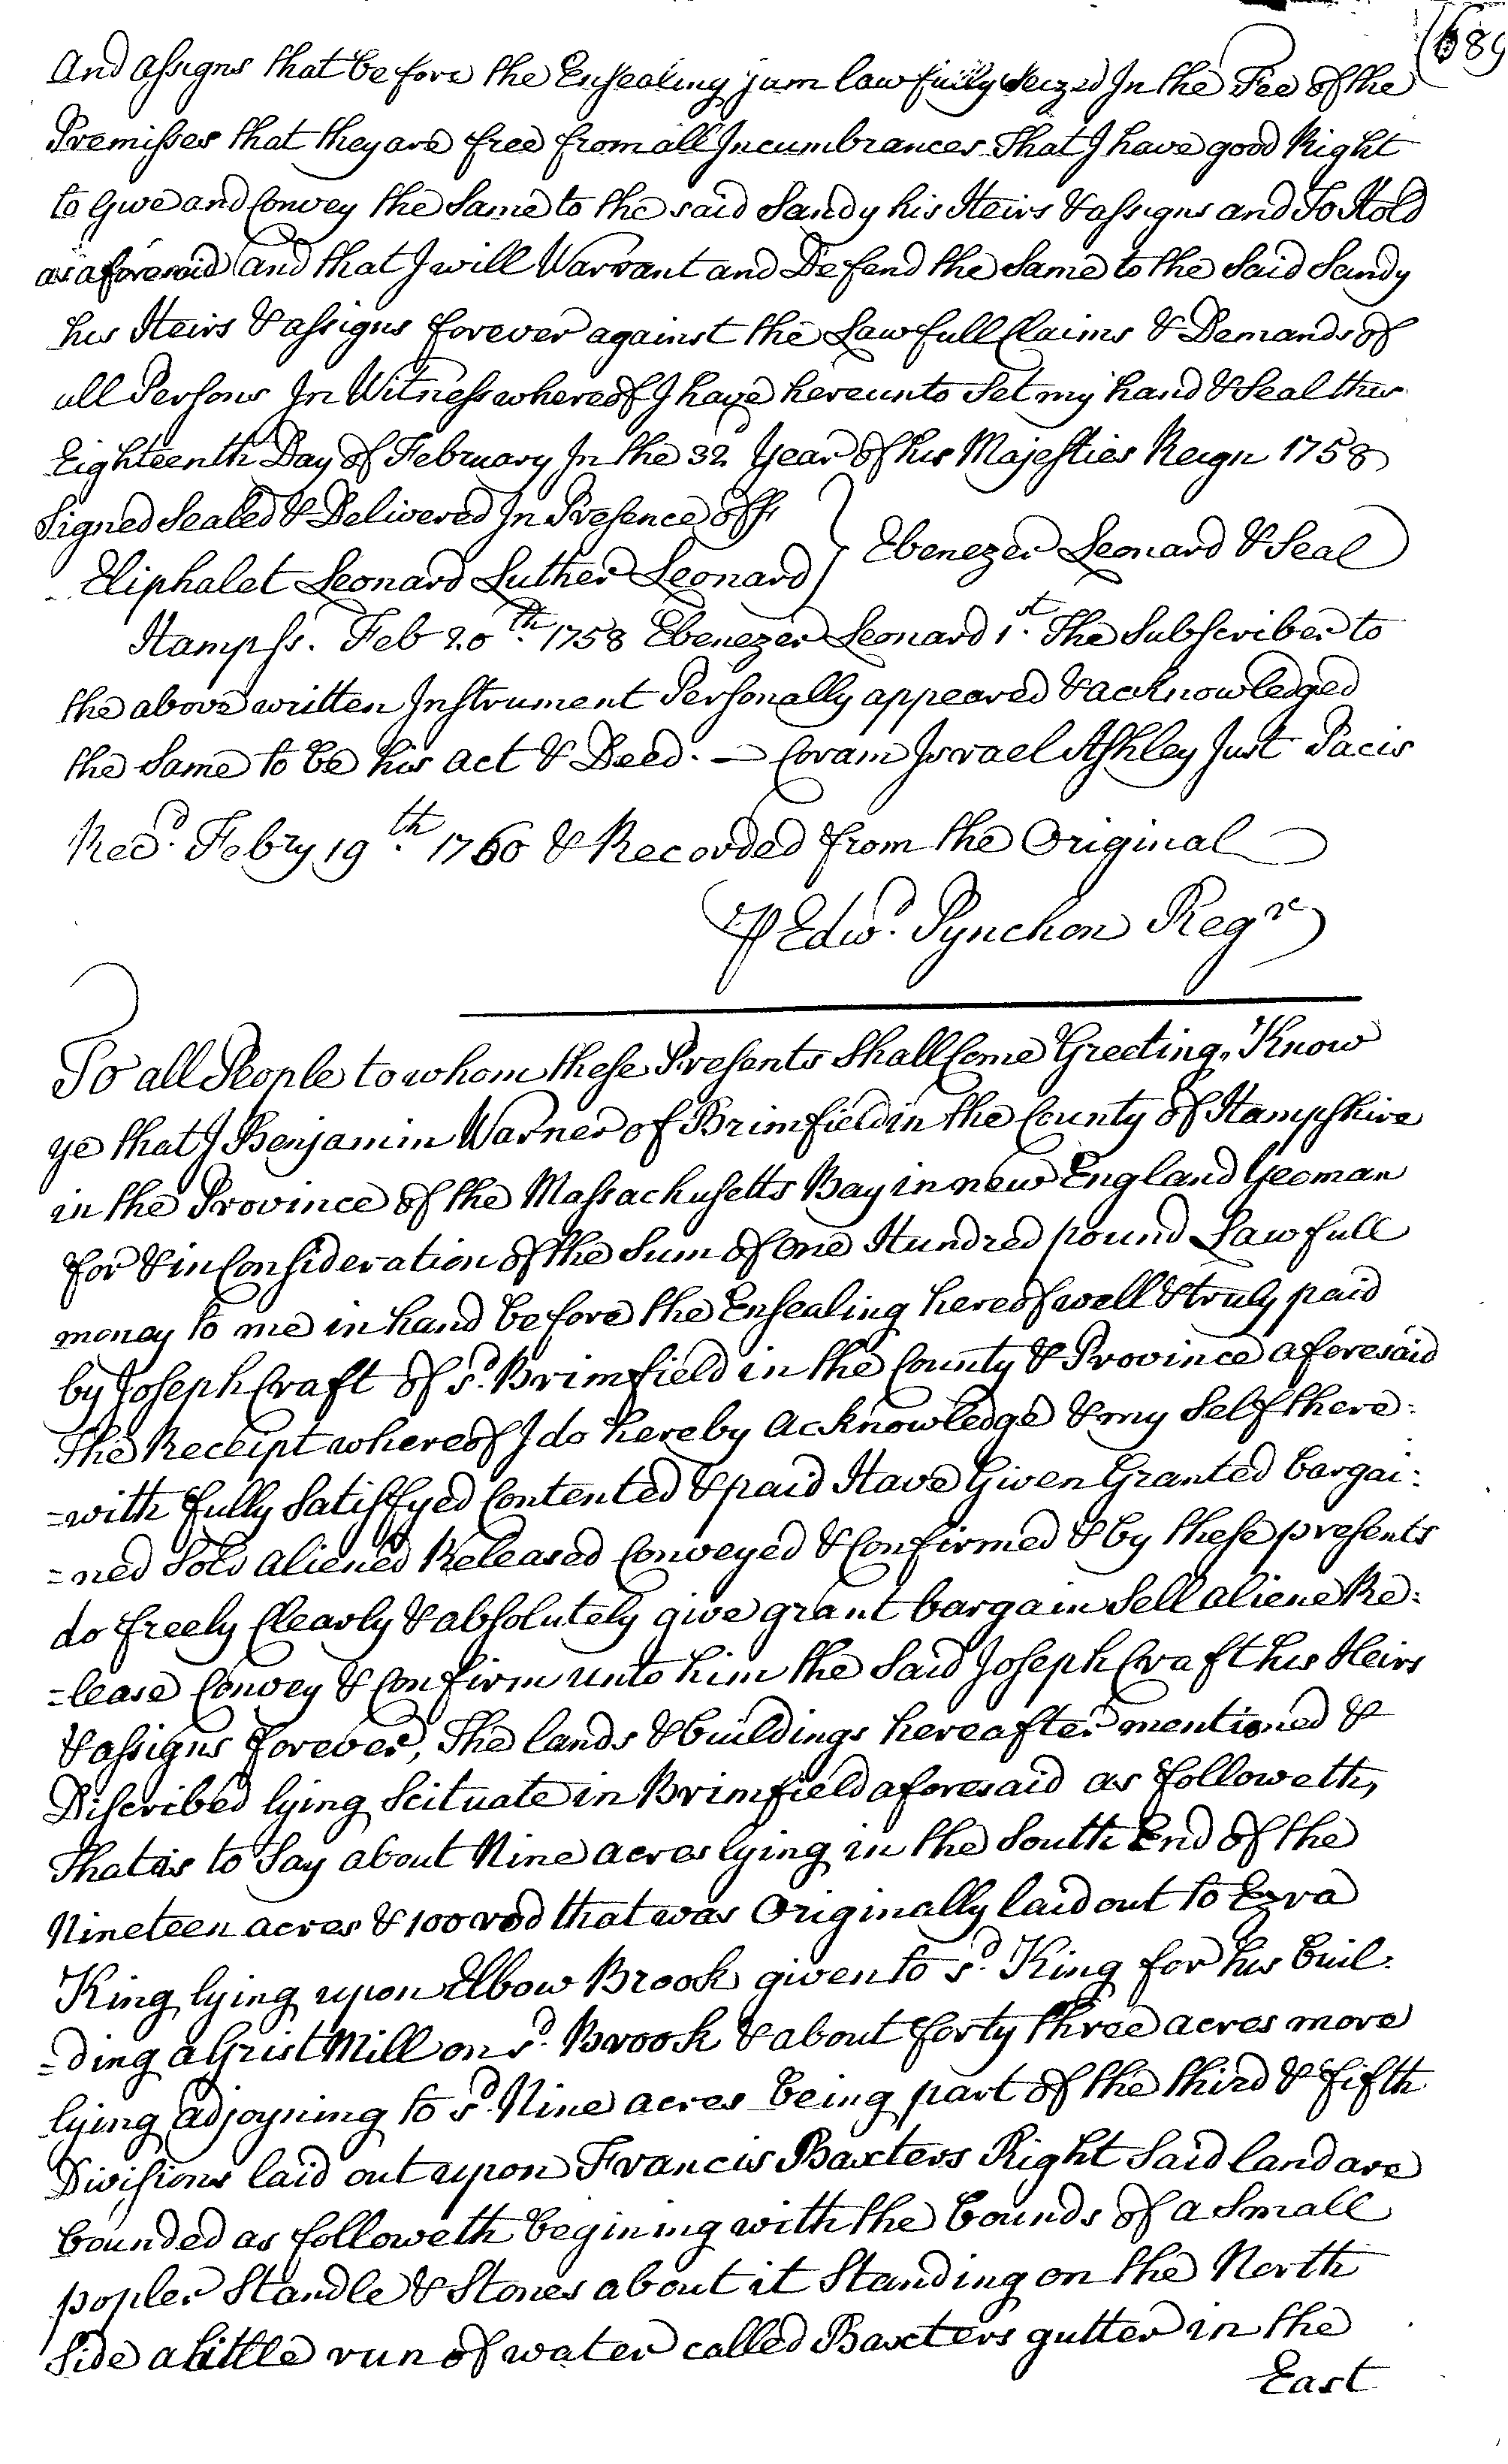 (689
And assigns that before the Ensealing I am lawfully Seized In the Fee of the
Premisses that they are free from all Incumbrances That I have good Right
to Give and Convey the Same to the said Sandy his Heirs & assigns and To Hold
as aforesaid and that I will Warrant and Defend the Same to the Said Sandy
his Heirs & assigns forever against the Lawfull Claims & Demands of
all Persons In Witness whereof I have hereunto Set my hand & Seal this
Eighteenth Day of February In the 32d Year of his Majesties Reign 1758
Signed Sealed & Delivered In Presence off
Ebenezer Leonard & Seal
Eliphalet Leonard Luther Leonard
Hampss. Feb 20th. 1758 Ebenezer Leonard 1st. The Subscriber to
the above written Instrument Personally appeared & acknowledged
the Same to be his act & Deed. — Coram Israel Ashley Just Pacis
Recd. Febry 19th. 1760 & Recorded from the Original
P Edwd. Pynchon Regr
To all People to whom these Presents Shall Come Greeting, Know
ye that I Benjamin Warner of Brimfield in the County of Hampshire
in the Province of the Massachusetts Bay in new England Yeoman
for & in Consideration of the Sum of One Hundred pound Lawfull
money to me in hand before the Ensealing hereof well & truly paid
by Joseph Craft of sd. Brimfield in the County & Province aforesaid
The Receipt whereof I do hereby acknowledge & my Self there:
=with fully Satisfyed Contented & paid Have Given Granted bargai:
=ned Sold aliened Released Conveyed & Confirmed & by these presents
do freely Clearly & absolutely give grant bargain Sell aliene Re:
=lease Convey & Confirm unto him the Said Joseph Craft his Heirs
& assigns forever, The lands & buildings hereafter mentioned &
Discribed lying Scituate in Brimfield aforesaid as followeth,
That is to Say about Nine acres lying in the South End of the
Nineteen acres & 100 rod that was Originally laid out to Ezra
King lying upon Elbow Brook given to sd. King for his buil:
=ding a Grist Mill on sd. Brook & about forty three acres more
lying adjoyning to sd. Nine acres being part of the third & fifth
Divisions laid out upon Francis Baxters Right Said land are
bounded as followeth begining with the bounds of a Small
popler Standle & Stones about it Standing on the North
Side a little run of water called Baxters gutter in the
East